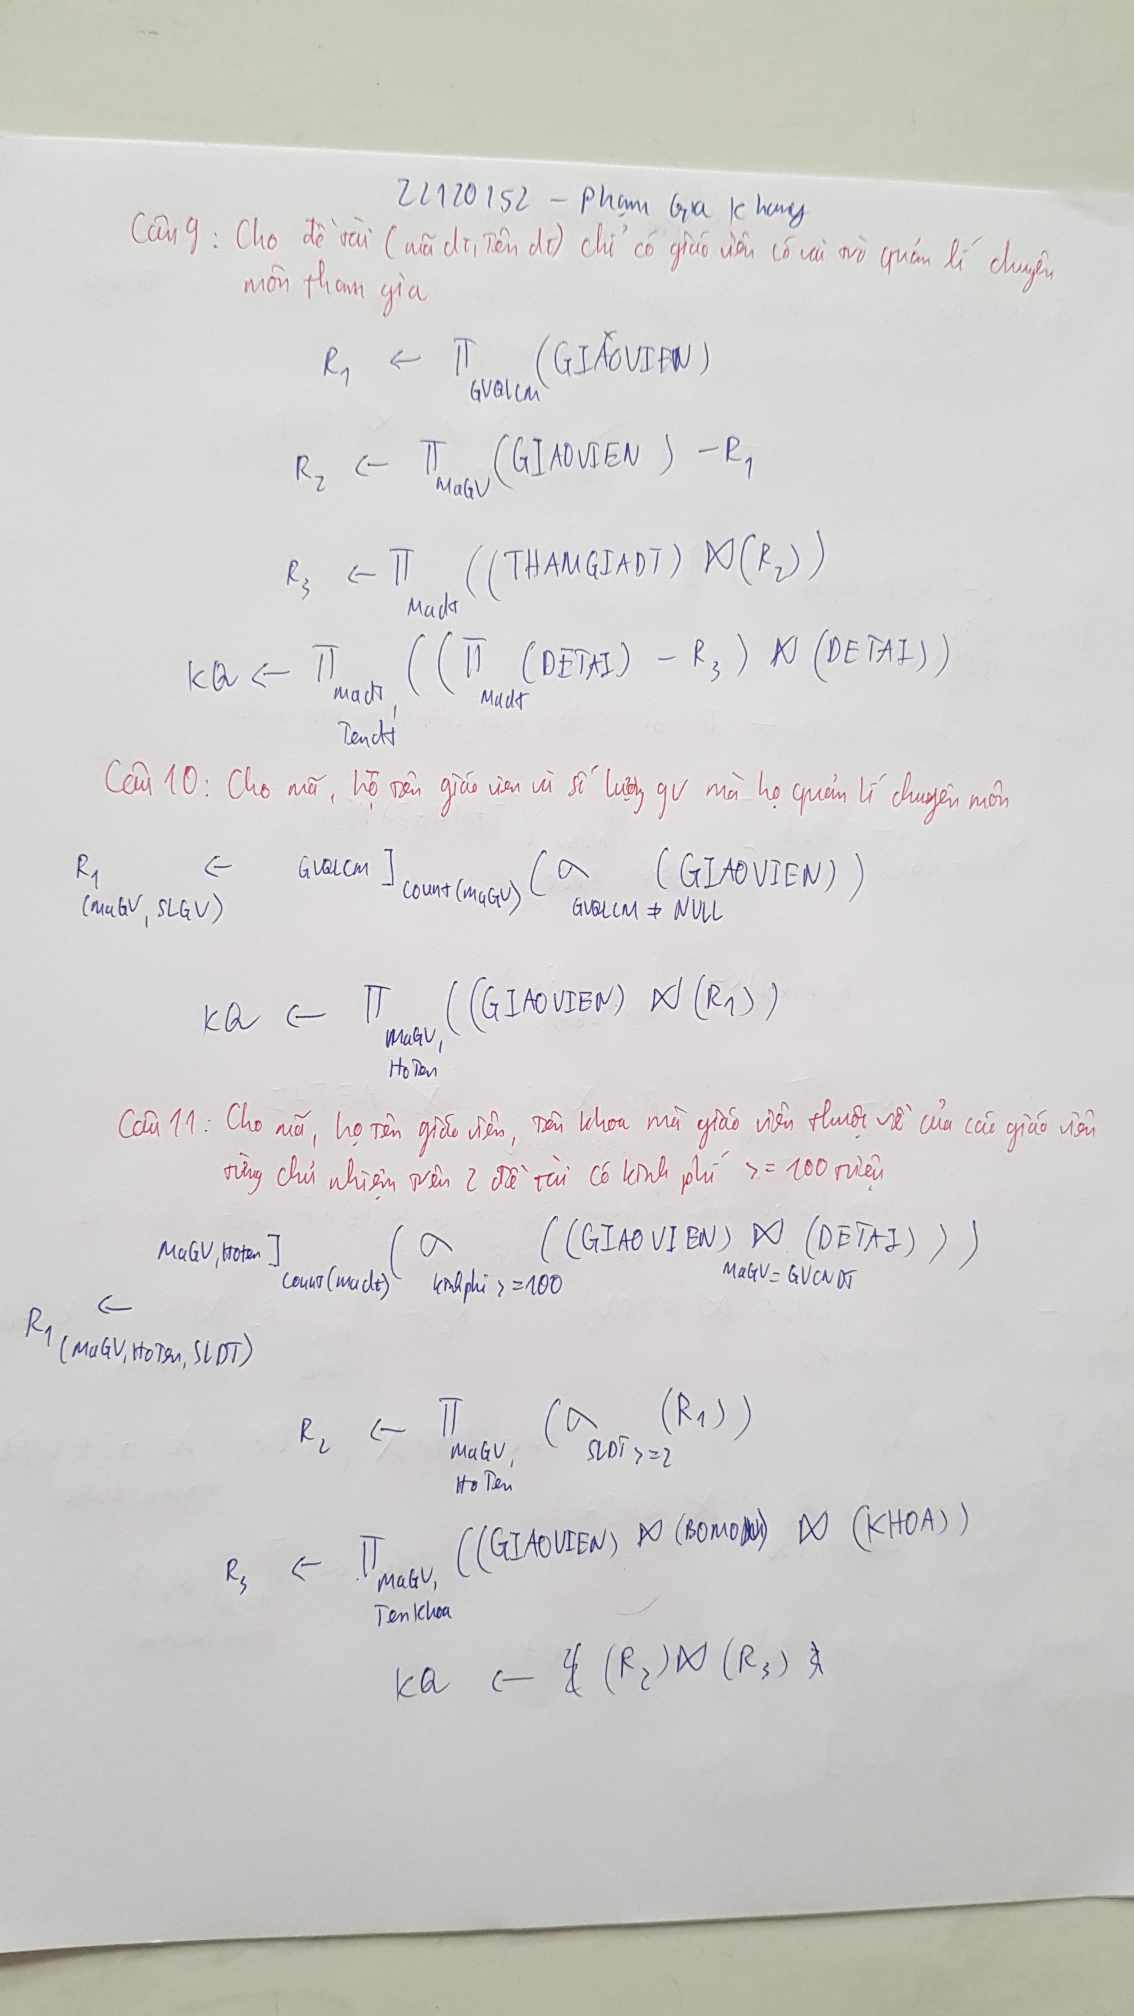 22120152 - Phạm Gia Khang
Câu 9 : Cho đề tài (mã dt, tên dt) chỉ có giáo viên có vai trò quản lí chuyên
môn tham gia
R1 ← π GVQLCM (GIAOVIEN)
R2 ← π MaGV (GIAOVIEN) - R1
R3 ← π Madt ((THAMGIADT) ⋈ (R2))
KQ ← π madt, Tendt ((π Madt (DETAI) - R3) ⋈ (DETAI))
Câu 10 : Cho mã, họ tên giáo viên và số lượng gv mà họ quản lí chuyên môn
R1 (maGV, SLGV) ← GVQLCM ℑ count(maGV) (σ GVQLCM ≠ NULL (GIAOVIEN))
KQ ← π MaGV, HoTen ((GIAOVIEN) ⋈ (R1))
Câu 11 : Cho mã, họ tên giáo viên, tên khoa mà giáo viên thuộc về của các giáo viên
từng chủ nhiệm trên 2 đề tài có kinh phí >= 100 triệu
MaGV, Hoten ℑ count(madt) (σ kinhphi >= 100 ((GIAOVIEN) ⋈ MaGV = GVCNDT (DETAI)))
R1 (MaGV, HoTen, SLDT) ←
R2 ← π MaGV, HoTen (σ SLDT >= 2 (R1))
R3 ← π MaGV, TenKhoa ((GIAOVIEN) ⋈ (BOMON) ⋈ (KHOA))
KQ ← (R2) ⋈ (R3)